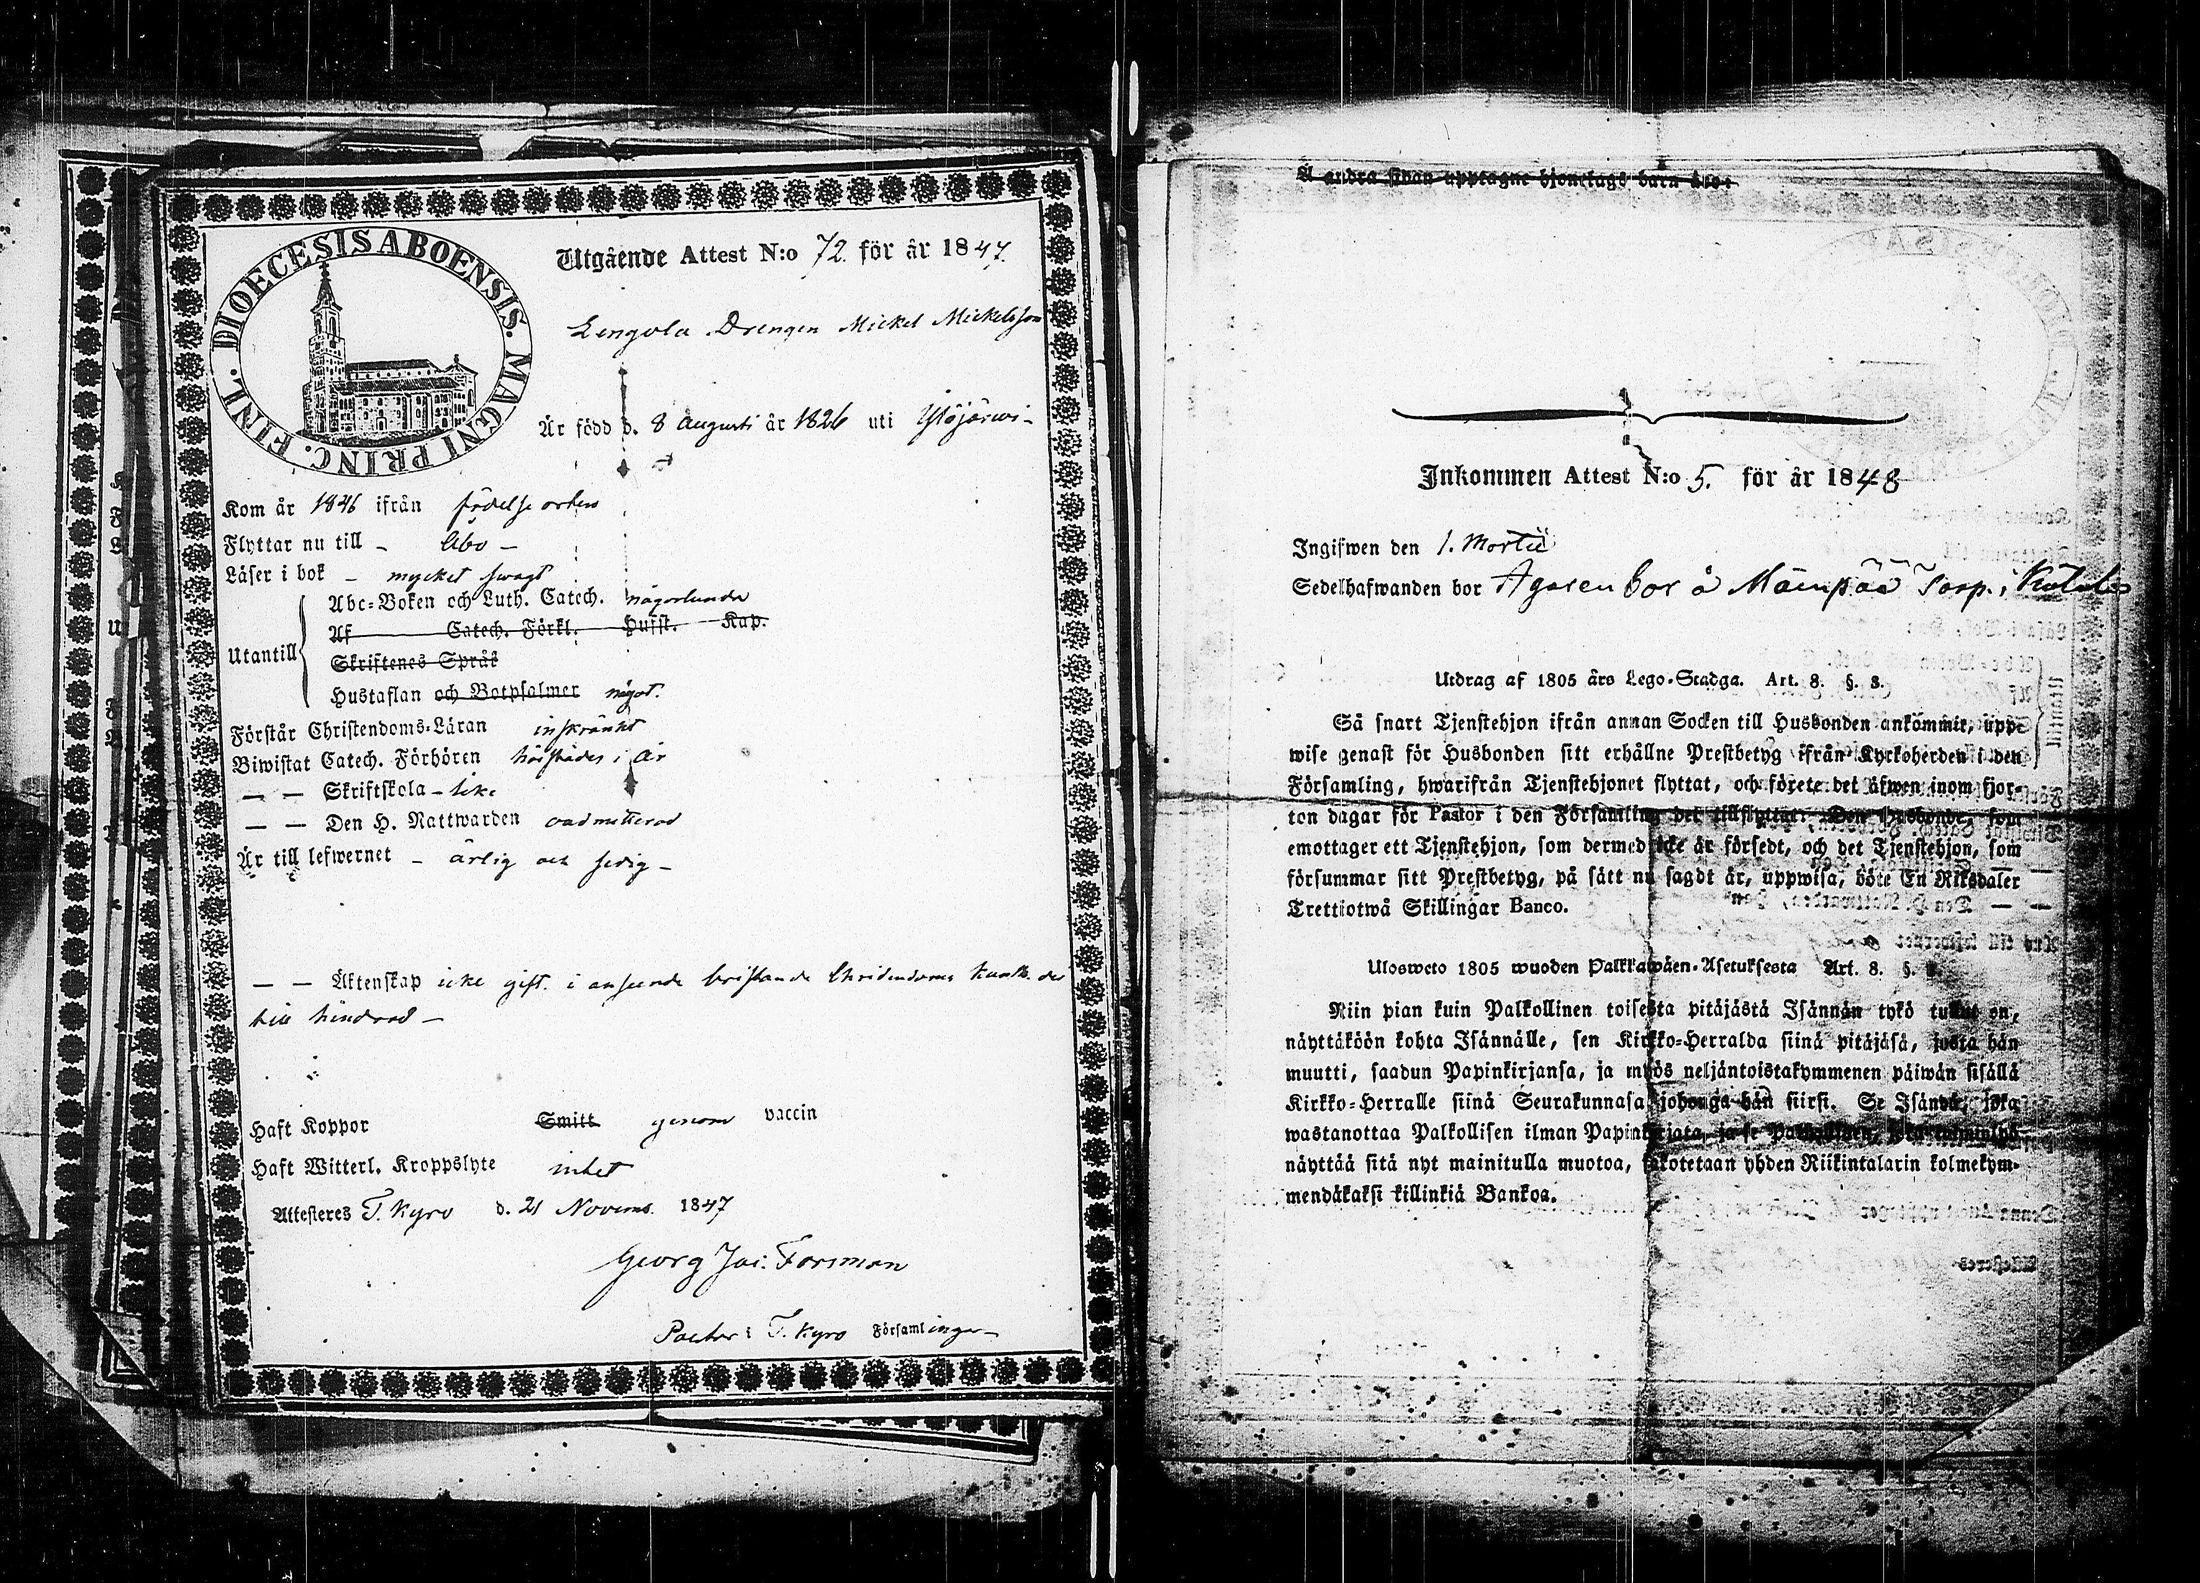 DIOECESIS ABOENSIS. MAGNI PRINC. FINL.
Utgående Attest N:o 72. för år 1847.
Lengola Drengen Mickel Mickelsson
Är född d. 8 Augusti år 1826 uti Ylöjärwi -
Kom år 1846 ifrån födelse orten
Flyttar nu till - Åbo -
Läser i bok - mycket swagt
Utantill
Abc-Boken och Luth. Catech. någorlunda
Af Catech. Förkl. Hufst. Kap.
Skriftenes Språk
Hustaflan och Botpsalmer något.
Förstår Christendoms-Läran inskränkt
Biwistat Catech. Förhören härstädes i år
— — Skriftskola - like
— — Den H. Nattwarden oadmitterad
Är till lefwernet - ärlig och sedig -
— — Äktenskap icke gift. i anseende bristande Christendoms kunsk. der
till hindrad -
Haft Koppor Smitt genom vaccin
Haft Witterl. Kroppslyte intet
Attesteres T. Kyro d. 21 Novemb. 1847
Georg Jac: Forsman
Pastor i T. Kyro Församlingar -
Å andra sidan upptagne hjonelags barn äro:
Inkommen Attest N:o 5. för år 1848
Ingifwen den 1. Martii
Sedelhafwanden bor Agaren bor å Mäenpää Torp.
Utdrag af 1805 års Lego-Stadga. Art. 8. §. 3.
Så snart Tjenstehjon ifrån annan Socken till Husbonden ankommit, upp-
wise genast för Husbonden sitt erhållne Prestbetyg ifrån Kyrkoherden i den
Församling, hwarifrån Tjenstehjonet flyttat, och förete det äfwen inom fjor-
ton dagar för Pastor i den Församling det tillflyttat. Den Husbonde, som
emottager ett Tjenstehjon, som dermed icke är försedt, och det Tjenstehjon, som
försummar sitt Prestbetyg, på sätt nu sagdt är, uppwisa, böte En Riksdaler
Trettiotwå Skillingar Banco.
Ulosweto 1805 wuoden Palkkawäen-Asetuksesta Art. 8. §.
Niin pian kuin Palkollinen toisesta pitäjästä Isännän tykö tullut on,
näyttäköön kohta Isännälle, sen Kirkko-Herralda siinä pitäjäsä, josta hän
muutti, saadun Papinkirjansa, ja myös neljäntoistakymmenen päiwän sisällä
Kirkko-Herralle siinä Seurakunnasa johonga hän siirsi. Se Isändä, joka
wastanottaa Palkollisen ilman Papinkirjata, ja se Palkollinen,
näyttää sitä nyt mainitulla muotoa, sakotetaan yhden Riikintalarin kolmekym-
mendäkaksi killinkiä Bankoa.